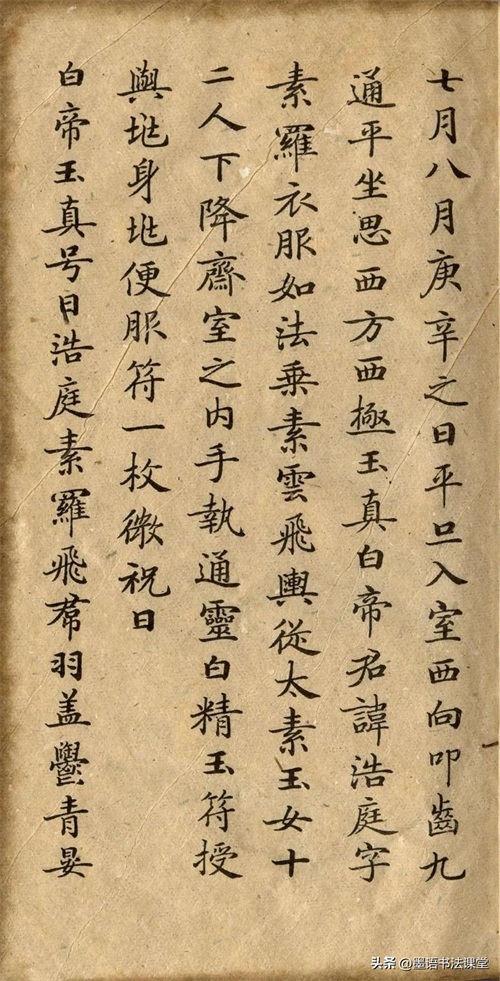 七月八月庚辛之日平旦入室西向叩齒九
通平坐思西方西極玉真白帝君諱浩庭字
素羅衣服如法乘素雲飛輿從太素玉女十
二人下降齋室之内手執通靈白精玉符授
與兆身兆便服符一枚微祝曰
白帝玉真号曰浩庭素羅飛帬羽盖鬱青晏
头条 @墨语书法课堂